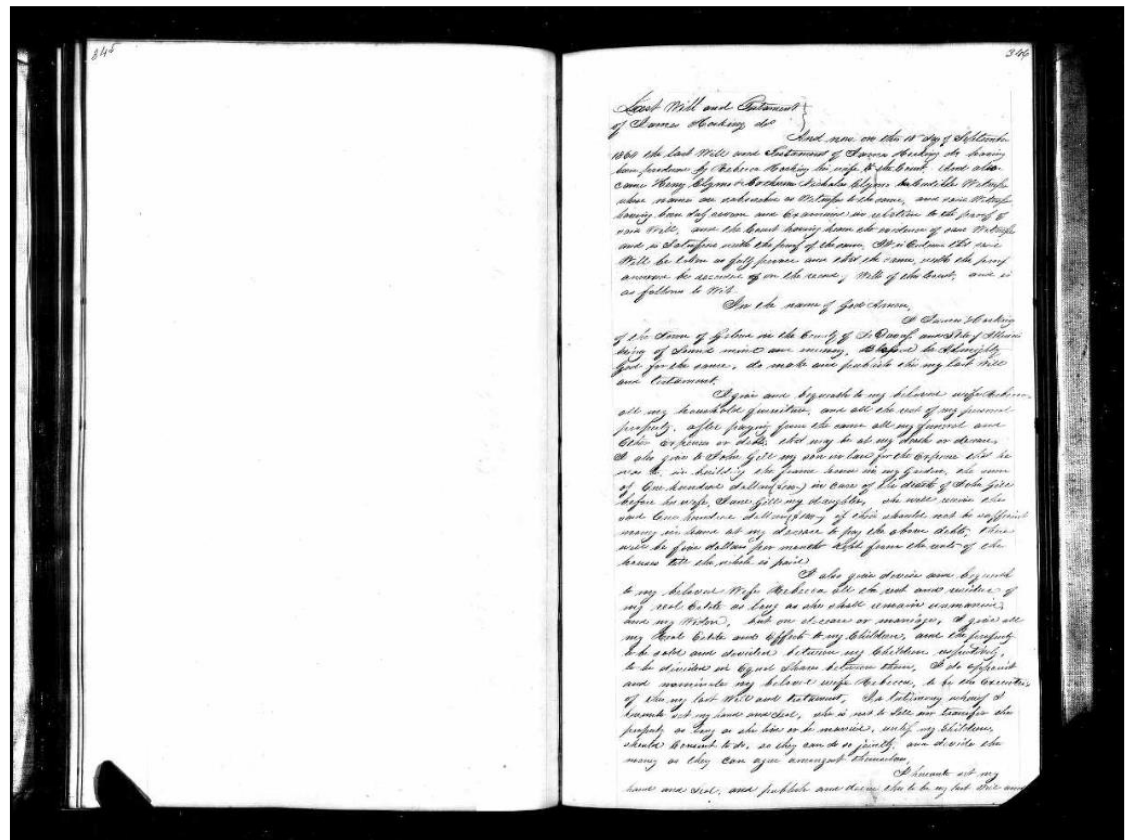 345
346
Last Will and Testament
of James Hocking decd
And now on this 12 day of September
1864 the last Will and Testament of James Hocking decd having
been produced by Rebecca Hocking his wife to the Court. And also
came Henry Clyma & Nicholas Clyma Credible Witnesses
whose names are subscribed as Witnesses to the same, and said Witnesses
having been duly sworn and Examined in relation to the proof of
said Will, and the Court having heard the evidence of said Witnesses
and is Satisfied with the proof of the same, It is Ordered that said
Will be taken as fully proved and that the same, with the proof
be recorded on the record of Wills of this Court, and is
as follows to Wit.
In the name of God Amen,
I James Hocking
of the Town of Galena in the County of Jo Daviess and State of Illinois
being of Sound mind and memory, Blessed be Almighty
God for the same, do make and publish this my last Will
and testament.
I give and bequeath to my beloved wife Rebecca,
all my household furniture, and all the rest of my personal
property, after paying from the same all my funeral and
Other Expenses or debts, that may be at my death or decease,
I also give to John Gill my son in law for the Expense that he
was to, in building the frame house in my Garden, the sum
of One hundred dollars in case of the death of John Gill
before his wife, Jane Gill my daughter, she will receive the
said One hundred dollars, if their should not be sufficient
money in hand at my decease to pay the above debts, there
will be five dollars per month kept from the rents of the
houses till the whole is paid
I also give devise and bequeath
to my beloved Wife Rebecca all the rest and residue of
my real Estate as long as she shall remain unmarried
and my Widow, but on decease or marriage, I give all
my Real Estate and Effects to my Children, and the property
to be sold and divided between my Children respectively,
to be divided in Equal Shares between them, I do appoint
and nominate my beloved wife Rebecca, to be the Executrix
of this my last Will and testament, In testimony whereof I
hereunto set my hand and Seal, she is not to Sell or transfer the
property as long as she live or be married, until my Children,
should Consent to do, so they can do so jointly, and divide the
money as they can agree amongst themselves,
I hereunto set my
hand and Seal, and publish and decree this to be my last Will and